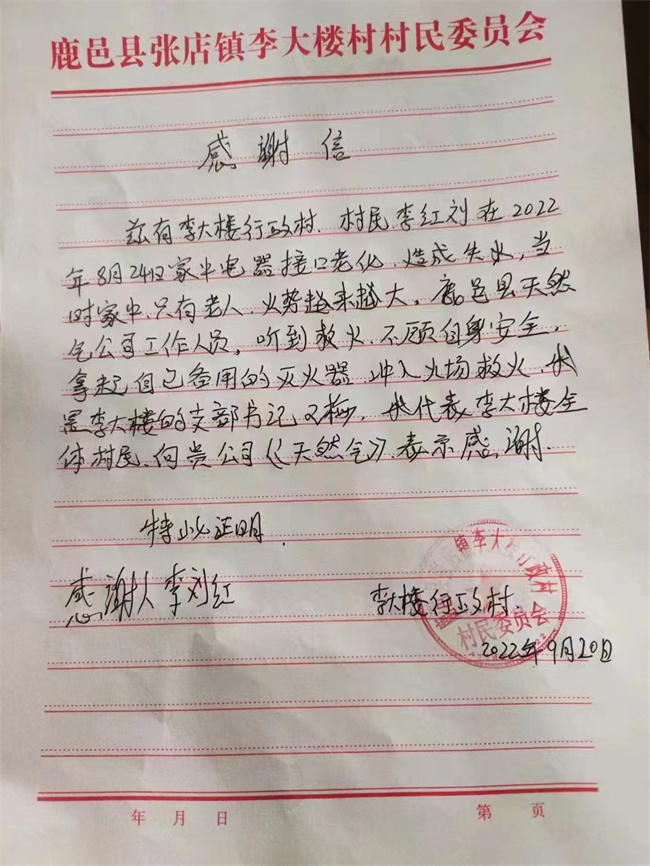 鹿邑县张店镇李大楼村村民委员会
感谢信
兹有李大楼行政村.村民李红刘在2022
年8月24日家中电器接口老化.造成失火,当
时家中.只有老人.火势越来越大,鹿邑县天然
气公司工作人员,听到救火.不顾自身安全,
拿起自己备用的灭火器冲入火场救火.我
是李大楼的支部书记 梅,我代表李大楼全
体村民.向贵公司《天然气》.表示感谢.
特此证明.
感谢人李刘红
李大楼行政村.
镇李大 行政村
村民委员会
2022年9月20日
年 月 日
第 页